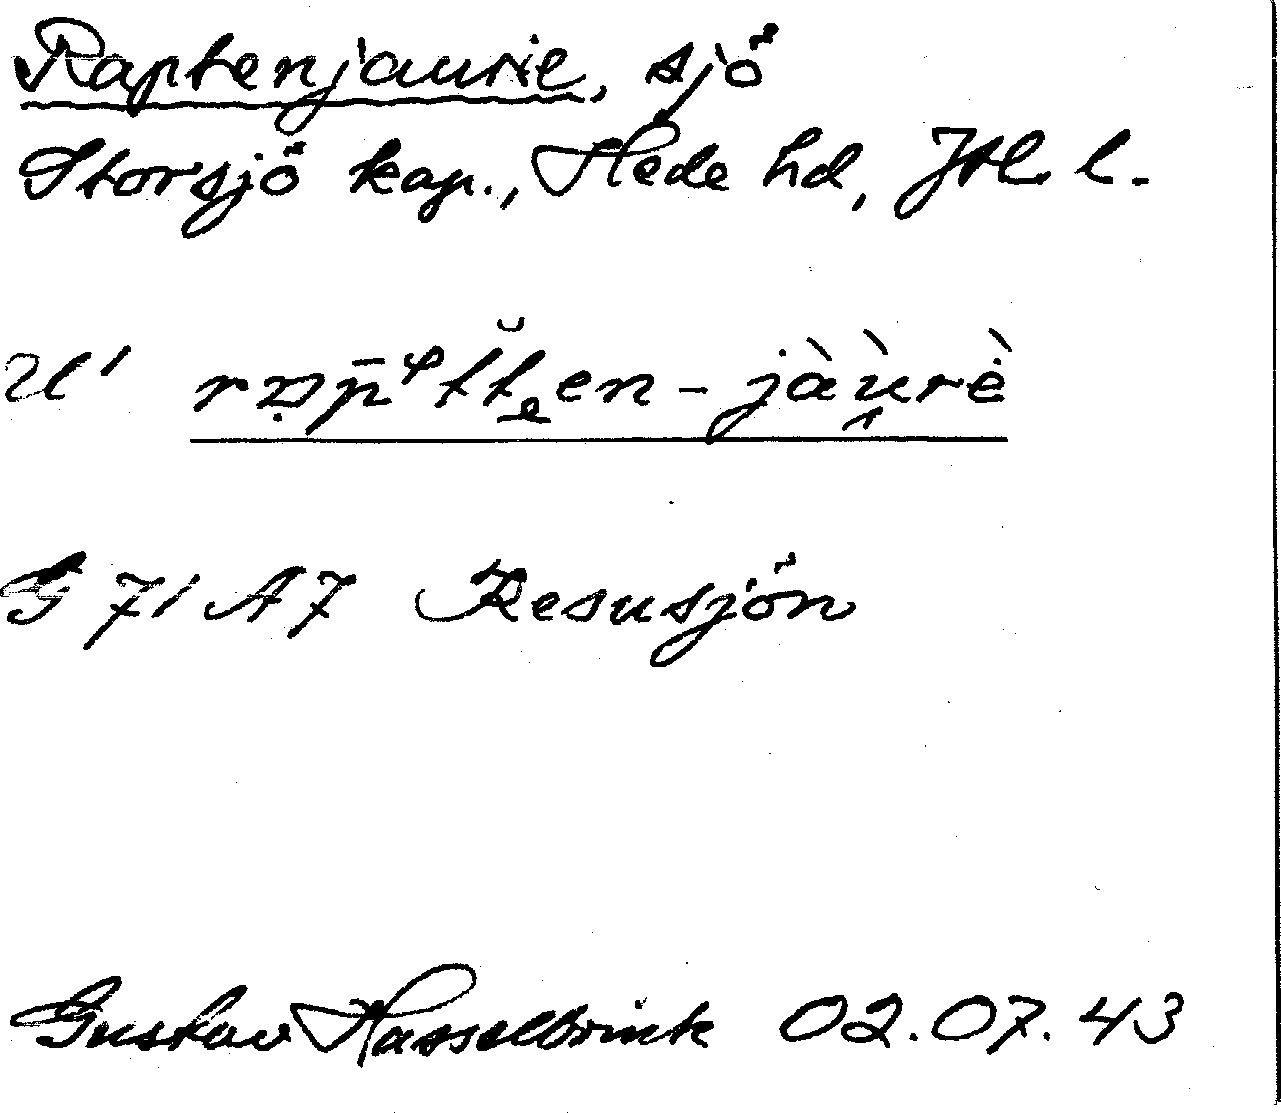 Raptenjaurie, sjö
Storsjö kap., Hede hd, Jtl l.
U'
G 71 A7 Resusjön
Gustav Hasselbrink 02.07.43